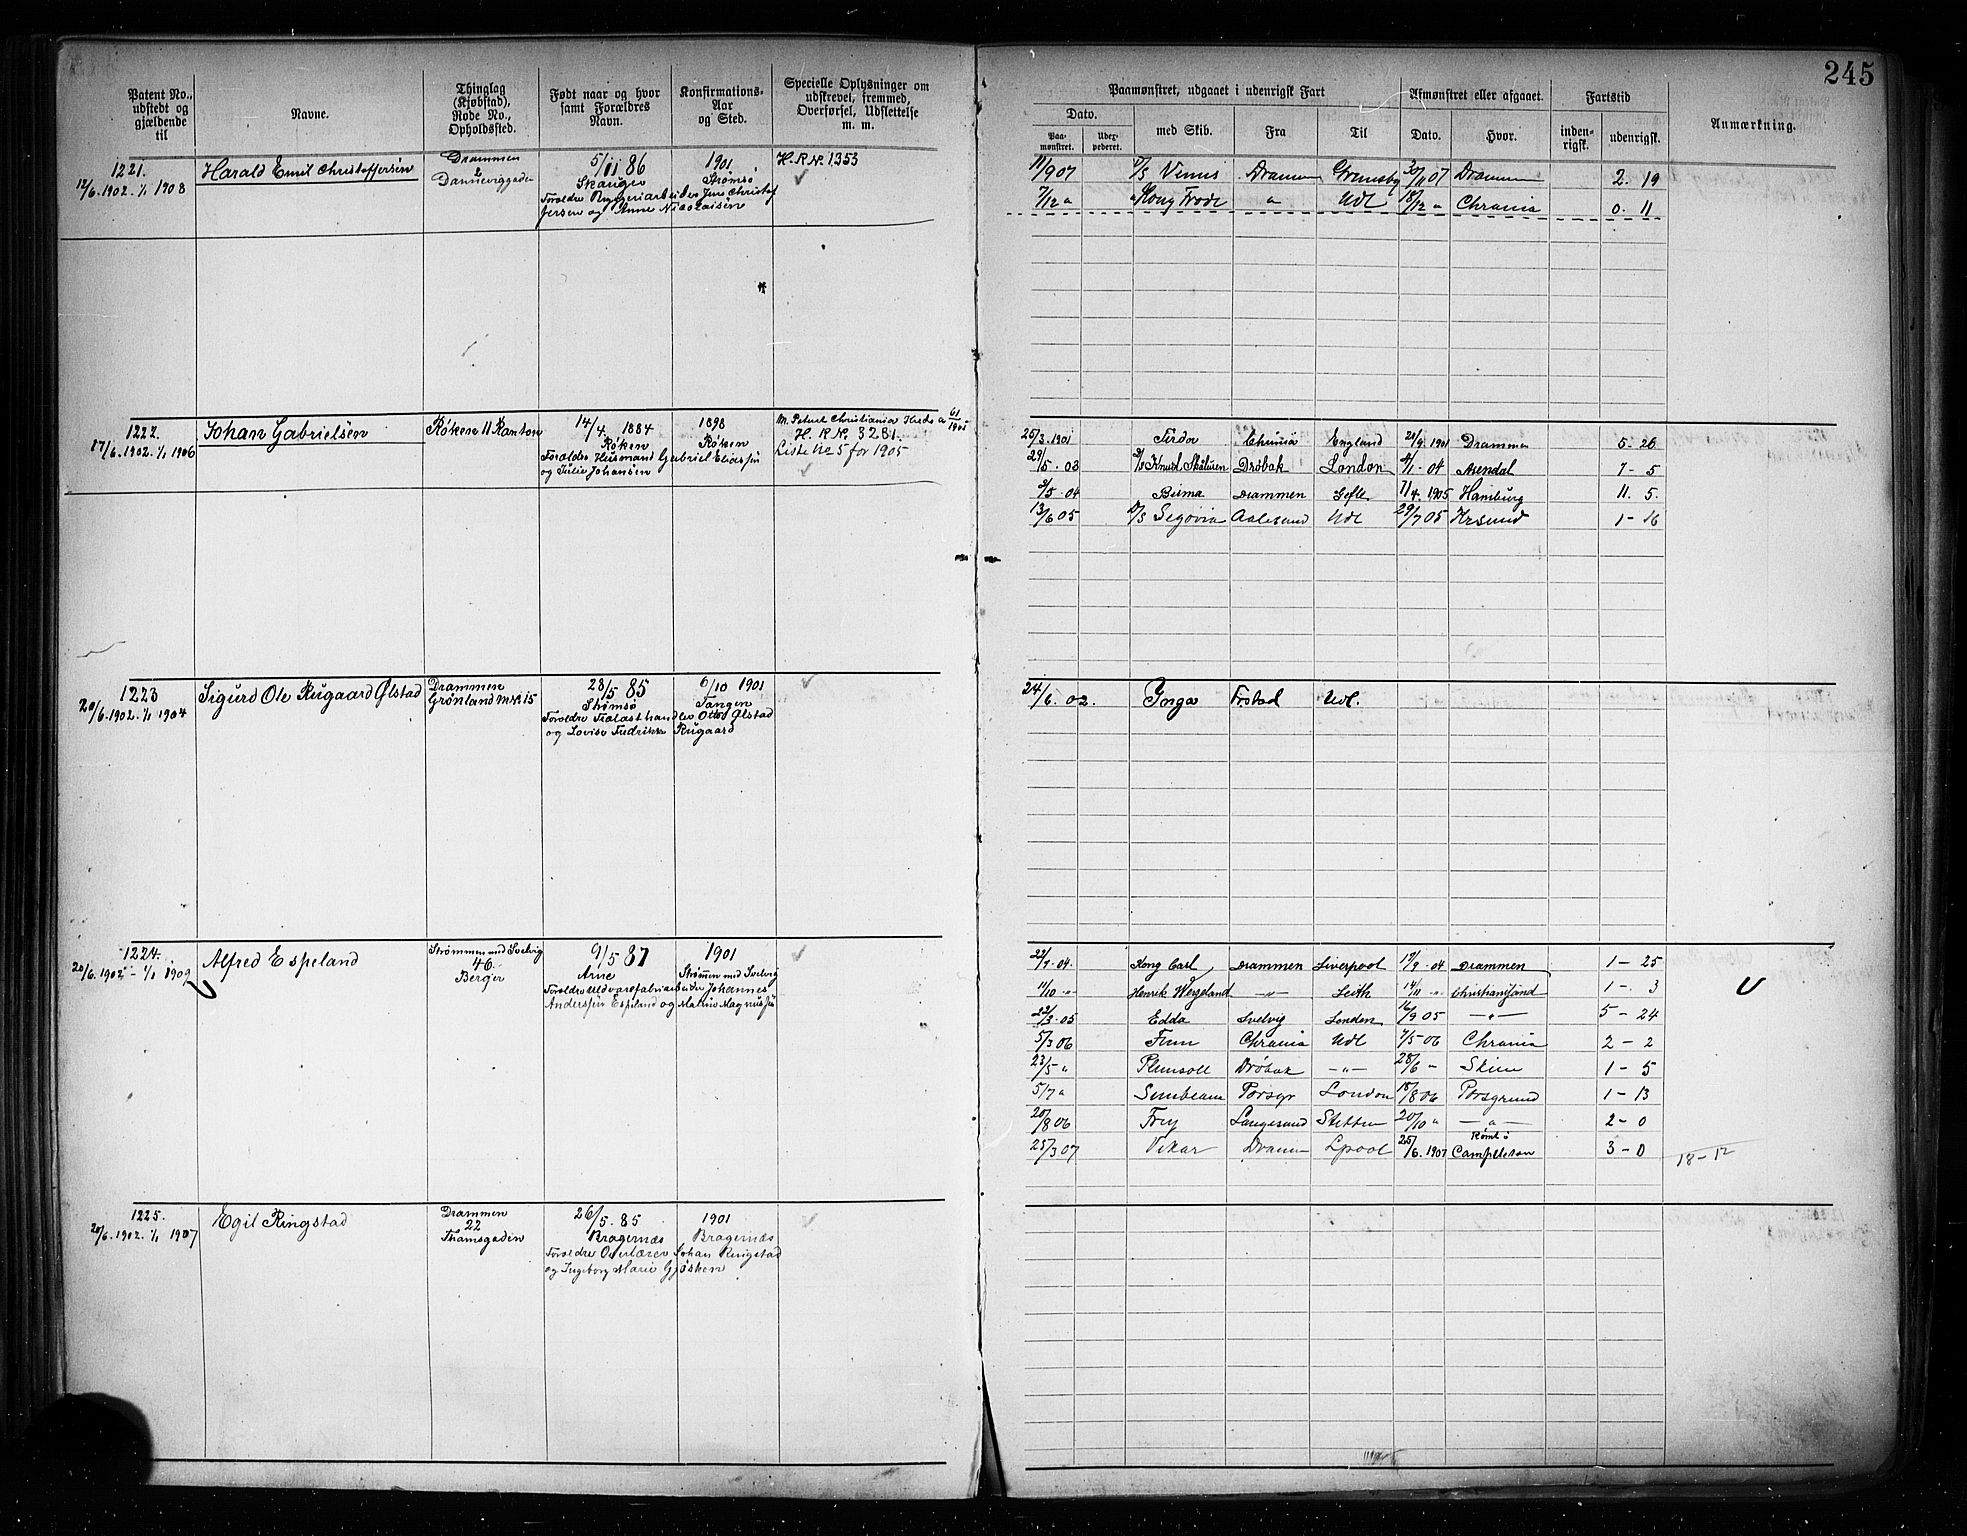 245
Patent No., udstedt og gjældende til
Navne.
Thinglag (Kjøbstad), Rode No., Opholdssted.
Født naar og hvor samt Forældres Navn.
Konfirmations-Aar og Sted.
Specielle Oplysninger om udskrevet, fremmed, Overførsel, Udslettelse m. m.
Paamønstret, udgaaet i udenrigsk Fart
Afmønstret eller afgaaet.
Fartstid
Anmærkning.
Dato.
Paa-mønstret.
med Skib.
Fra
Til
Dato.
Hvor.
inden-rigsk.
udenrigsk.
1221.
12/6.1902. 1/1 1908
Harald Emil Christoffersen
Drammen
2
Danneviggaden
5/11 86
Skauger
Foroldre Ryggeriarbeider Jens Christof
fersen og Anne Nicolaisen
1901
Strømsø
H.R.N. 1353
11/9 07 D/S Venus Drammen Grimsby 30/11 07 Drammen 2. 19
7/12 " " Kong Frode " Udl 18/12 " Chrania 0. 11
1222.
17/6.1902. 1/1 1906
Johan Gabrielsen
Røken II Kanton
14/4 1884
Røken
Foroldre Husmand Gabriel Eliassen
og Julie Johansen
1898
Røken
M. Patent Christiania Kreds a 61/1905
H. R. N. 3281.
Liste No 5 for 1905
25/3.1901 England 1901 Drammen 5. 26
29/5.03 Knud Skaluren Drøbak London 4/1.04 Arendal 7 - 5
3/5.04 Birma Drammen Gefle 7/4.1905 Hamburg 11. 5.
13/6 05 D/S Segovia Aalesund Udl 29/7 05 Krsund 1 - 16
1223
20/6.1902. 1/1 1904
Sigurd Ole Rugaard Ølstad
Drammen
Grønland M.N. 15
28/5 85
Strømsø
Foroldre Trælasthandler Otto Ølstad
og Lovise Fredrikke Rugaard
6/10 1901
Tangen
24/6.02. Inga Frstad Udl.
1224.
20/6.1902 - 1/1 1909
Alfred Espeland
Strømmen med Svelvig
46
Berger
9/5 87
Arne
Foroldre Uldvarefabrikarbeider Johannes
Anderssen Espeland og Marie Magnussen
1901
Strømen med Svelvig
22/7.04. Kong Carl Drammen Liverpool 17/9.04 Drammen 1 - 25
11/10 " Henrik Wergeland — " — Leith 14/11 " Christianssand 1 - 3
22/3.05 Edda Svelvig London 16/9 05 — " — 5 - 24
5/3 06 Finn Chrania Udl 7/5 06 Chrania 2 - 2
23/5 " Plimsoll Drøbak — " — 28/6 " Skien 1 - 5
5/7 " Sunbeam Porsgr London 18/8 06 Porsgrund 1 - 13
20/8 06 Frey Langesund Stettin 20/10 " — " — 2 - 0
25/3 07 Vikar Drammen Lpool 25/6.1907 Rømt i Campbleton 3 - 0 18 - 12
1225.
20/6.1902. 1/1 1907
Egil Ringstad
Drammen
22
Thamsgaden
26/5.85
Bragernæs
Foroldre Overlærer Johan Ringstad
og Ingeborg Marie Gjøsken
1901
Bragernæs